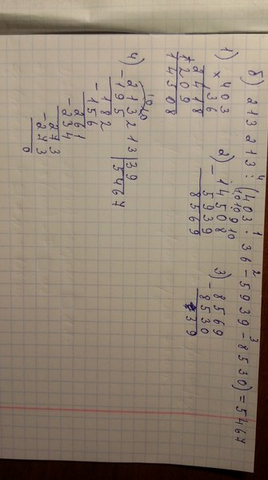 б) 213 213 : (403 · 36 - 5939 - 8530) = 5467
4 1 2 3
1) 403
× 36
2418
+ 1209
14508
2) - 14508
5939
8569
3) - 8569
8530
39
4) - 213213 | 39
195 5467
- 182
156
- 261
234
- 273
273
0